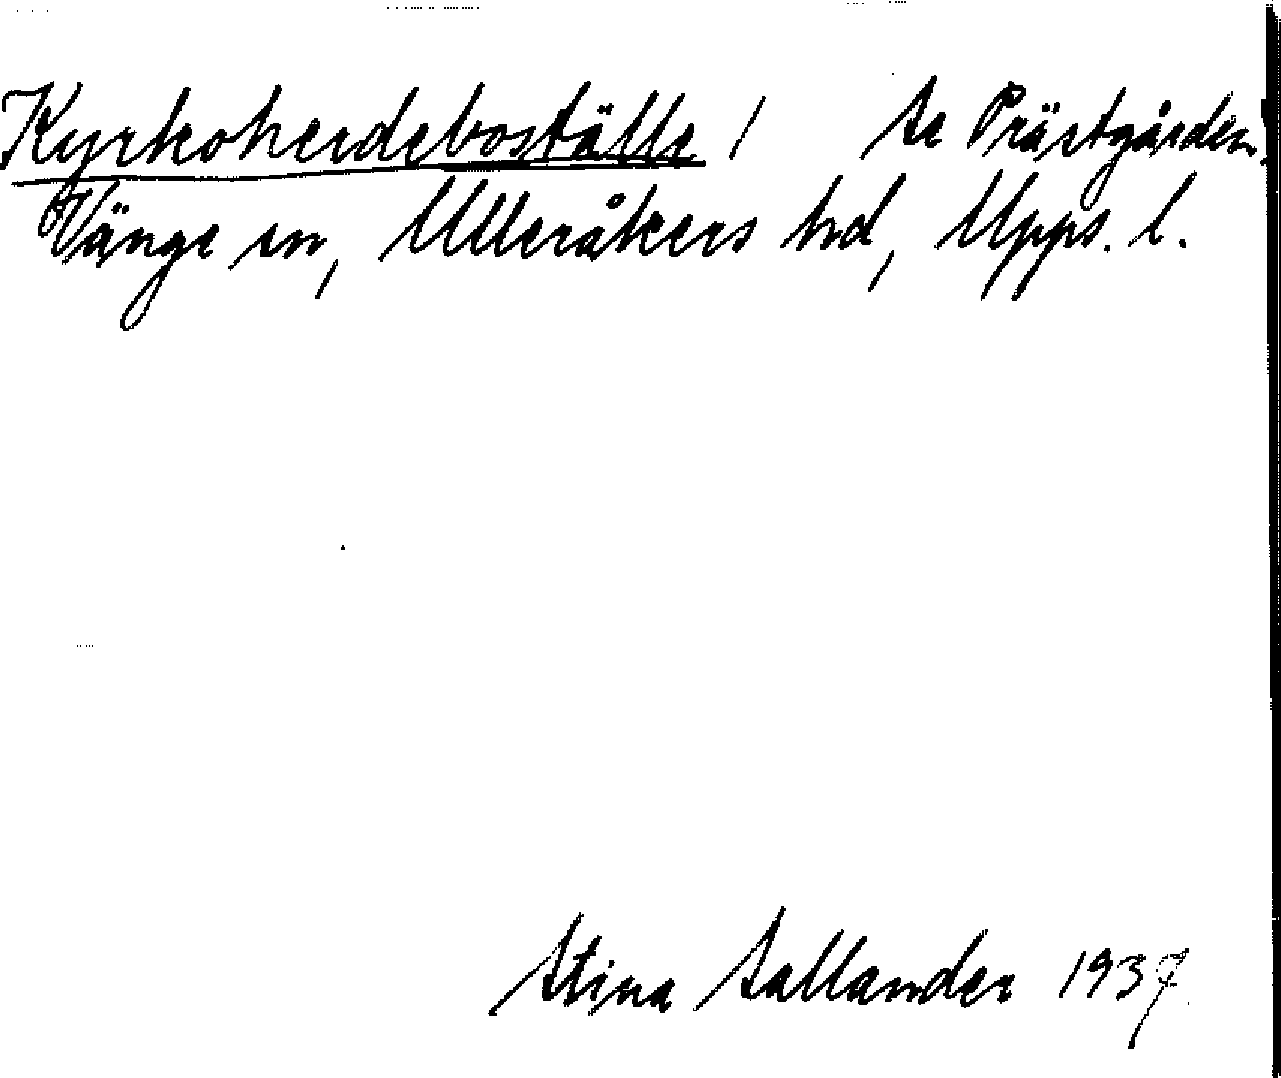 Kyrkoherdeboställe / Se Prästgården.
Vänge sn, Ulleråkers hd, Upps. l.
Stina Sallander 1937